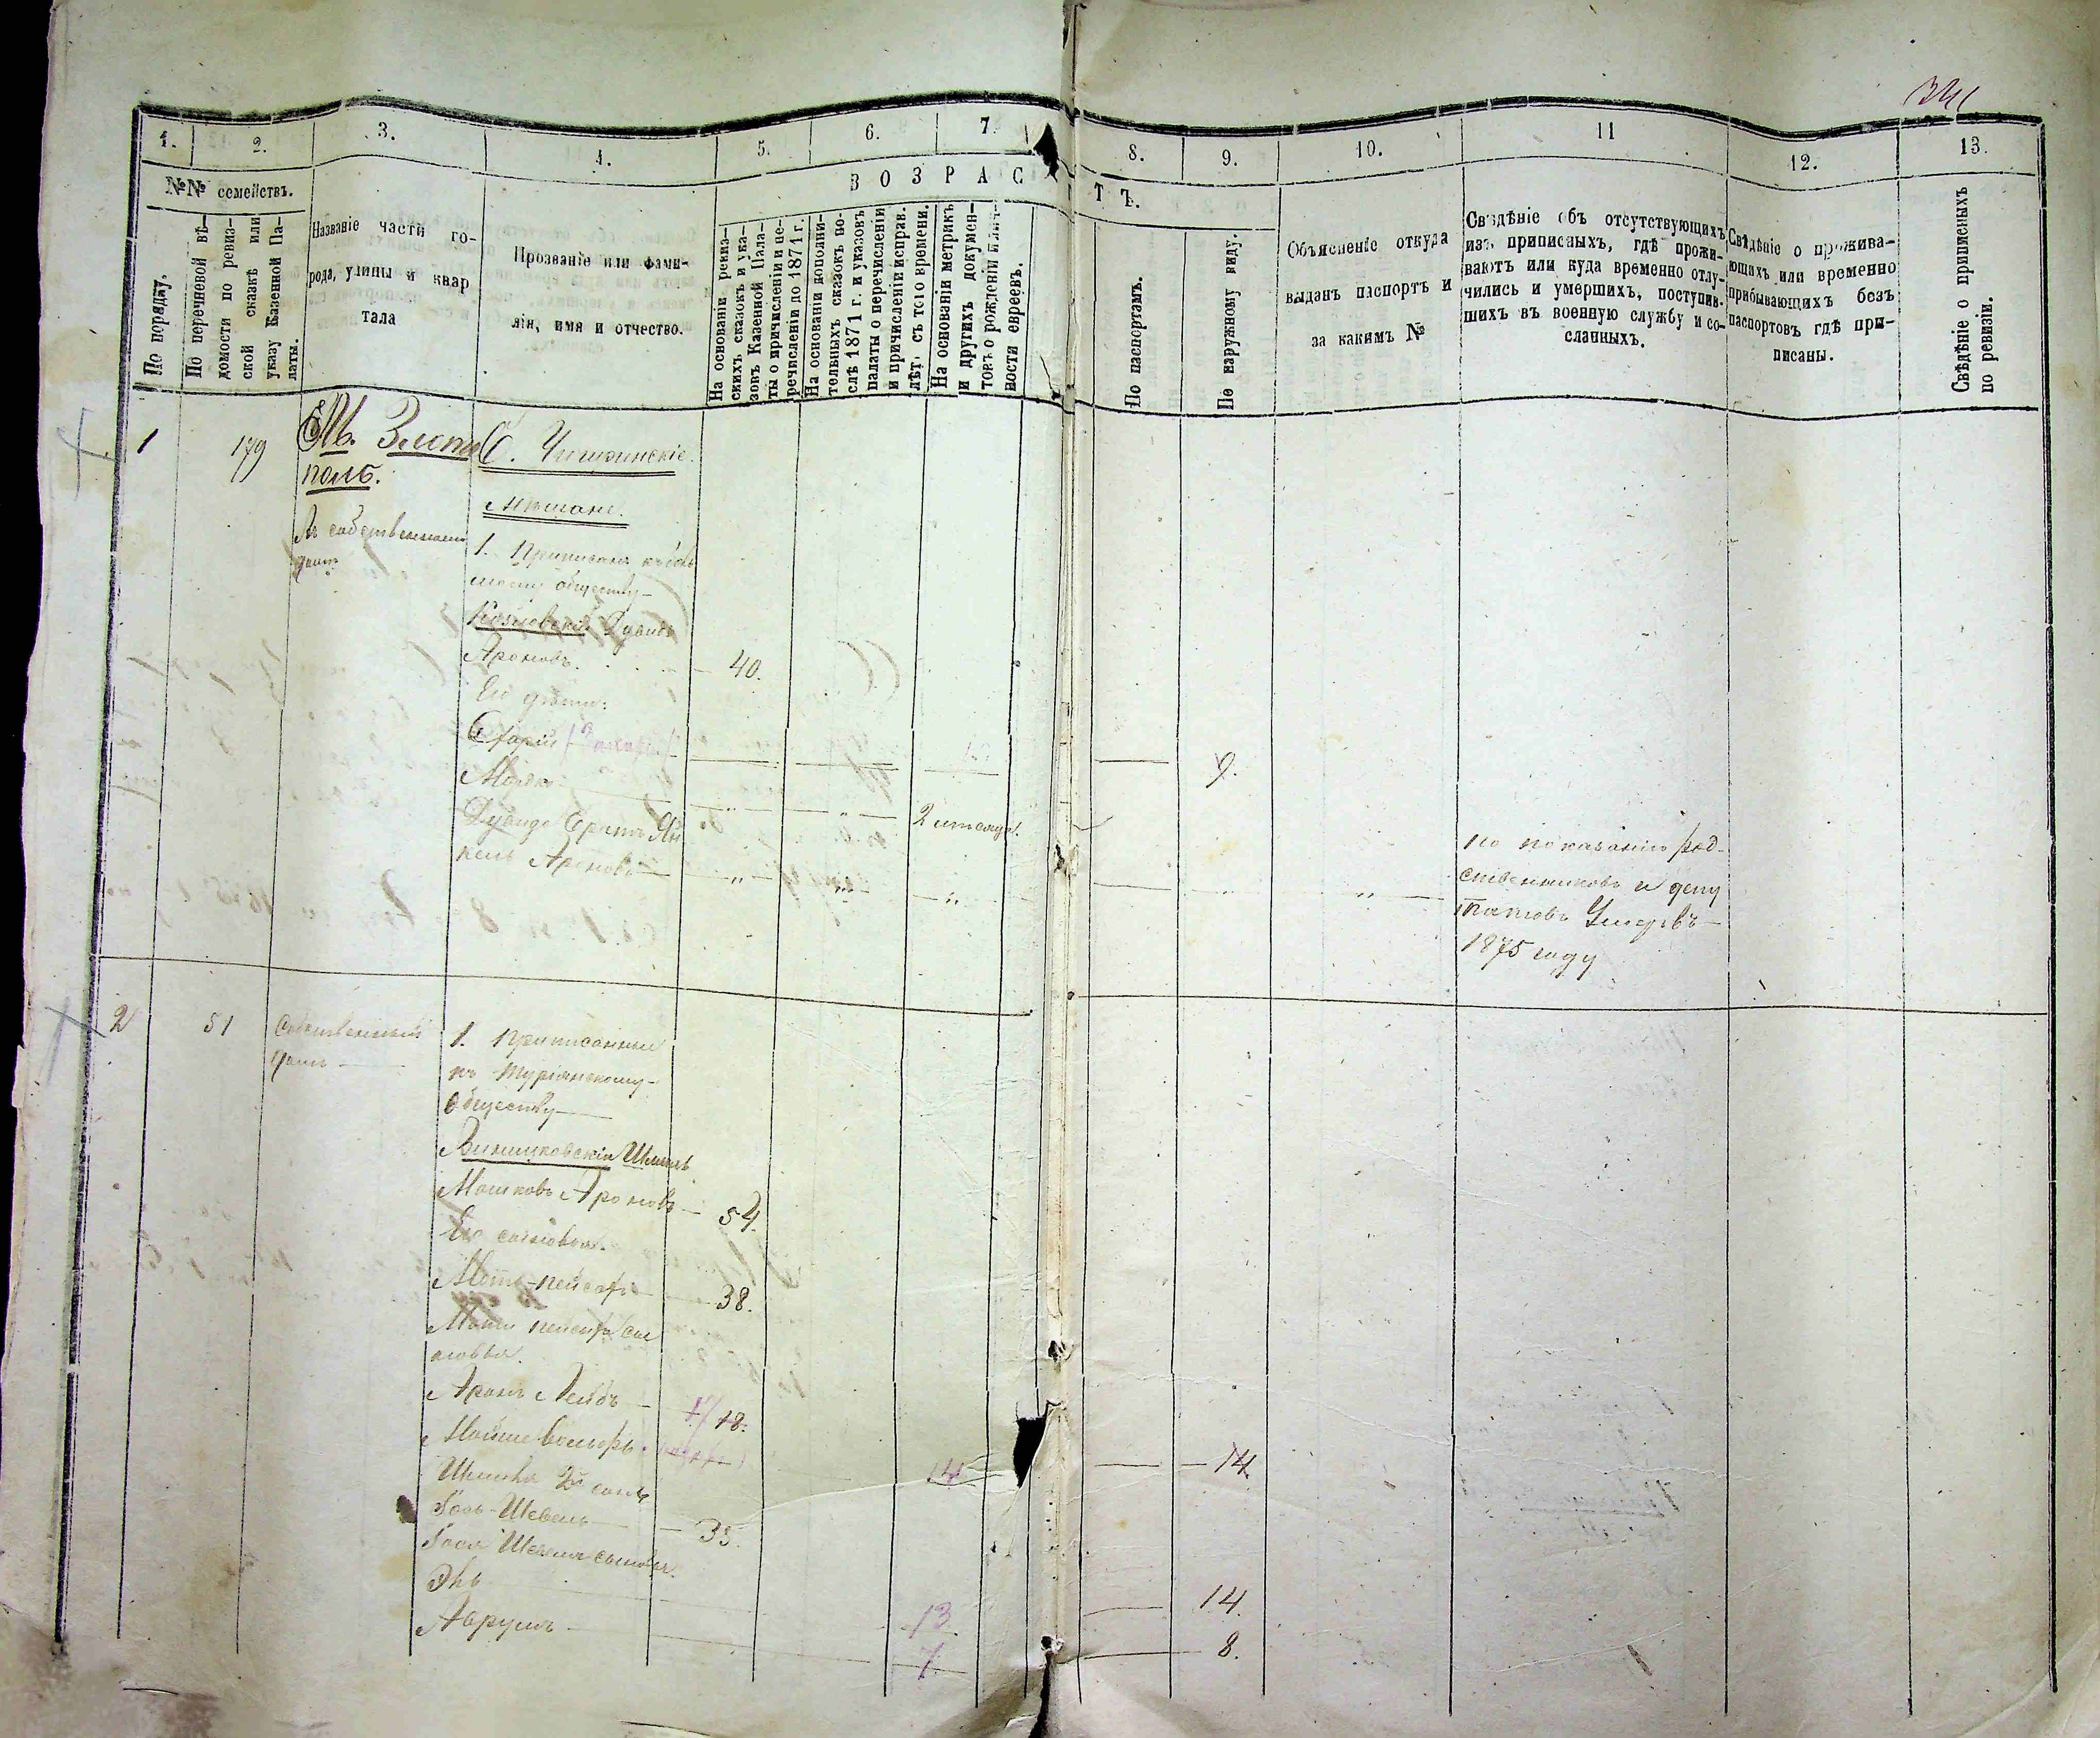 341
1.
2.
3.
4.
5.
6.
7.
8.
9.
10.
11
12.
13.
№№ семействъ.
По порядку.
По перечневой вѣ-
домости по ревиз-
ской сказкѣ или
указу Казенной Па-
латы.
Названіе части го-
рода, улицы и квар
тала
Прозваніе или фами-
лія, имя и отчество.
ВОЗРАСТЪ.
На основаніи ревиз-
скихъ сказокъ и ука-
зовъ Казенной Пала-
ты о причисленіи и пе-
речисленіи до 1871 г.
На основаніи дополни-
тельныхъ сказокъ по-
слѣ 1871 г. и указовъ
палаты о перечисленіи
и причисленіи исправ.
лѣт. съ того времени.
На основаніи метрикъ
и другихъ докумен-
товъ о рожденіи
ности евреевъ.
По паспортамъ.
По наружному виду.
Объясненіе откуда
выданъ паспортъ и
за какимъ №
Свѣдѣніе объ отсутствующихъ
изъ приписныхъ, гдѣ прожи-
ваютъ или куда временно отлу-
чились и умершихъ, поступив-
шихъ въ военную службу и со-
сланныхъ.
Свѣдѣніе о прожива-
ющихъ или временно
прибывающихъ безъ
паспортовъ гдѣ при-
писаны.
Свѣдѣніе о приписныхъ
по ревизіи.
1
179
М. Злато
поль.
Въ собственномъ
домѣ
Чигиринскіе
мѣщане.
1. Приписанъ къ
обществу
Дувидъ
Ароновъ. 40.
Его дѣти:
9.
Мошко
2 мѣсяца.
Дувида братъ Ян
кель Ароновъ
по показанію род-
ственниковъ и депу
татовъ Умеръ въ
1875 году
2
51
Собственный
домъ
1. Приписанные
къ Туріянскому
обществу
Винницковскій Шмиль
Мошковъ Ароновъ 54.
Его сыновья.
Мотъ-Пейсахъ 38.
Моти Пейсаха сы
новья.
Аронъ Лейбъ 17 18.
Мойше Вольфъ 14 14.
Шмиля 2й сынъ
Гось-Шевель 33.
Гося Шевеля сыновья.
13 14.
Аврумъ 7 8.